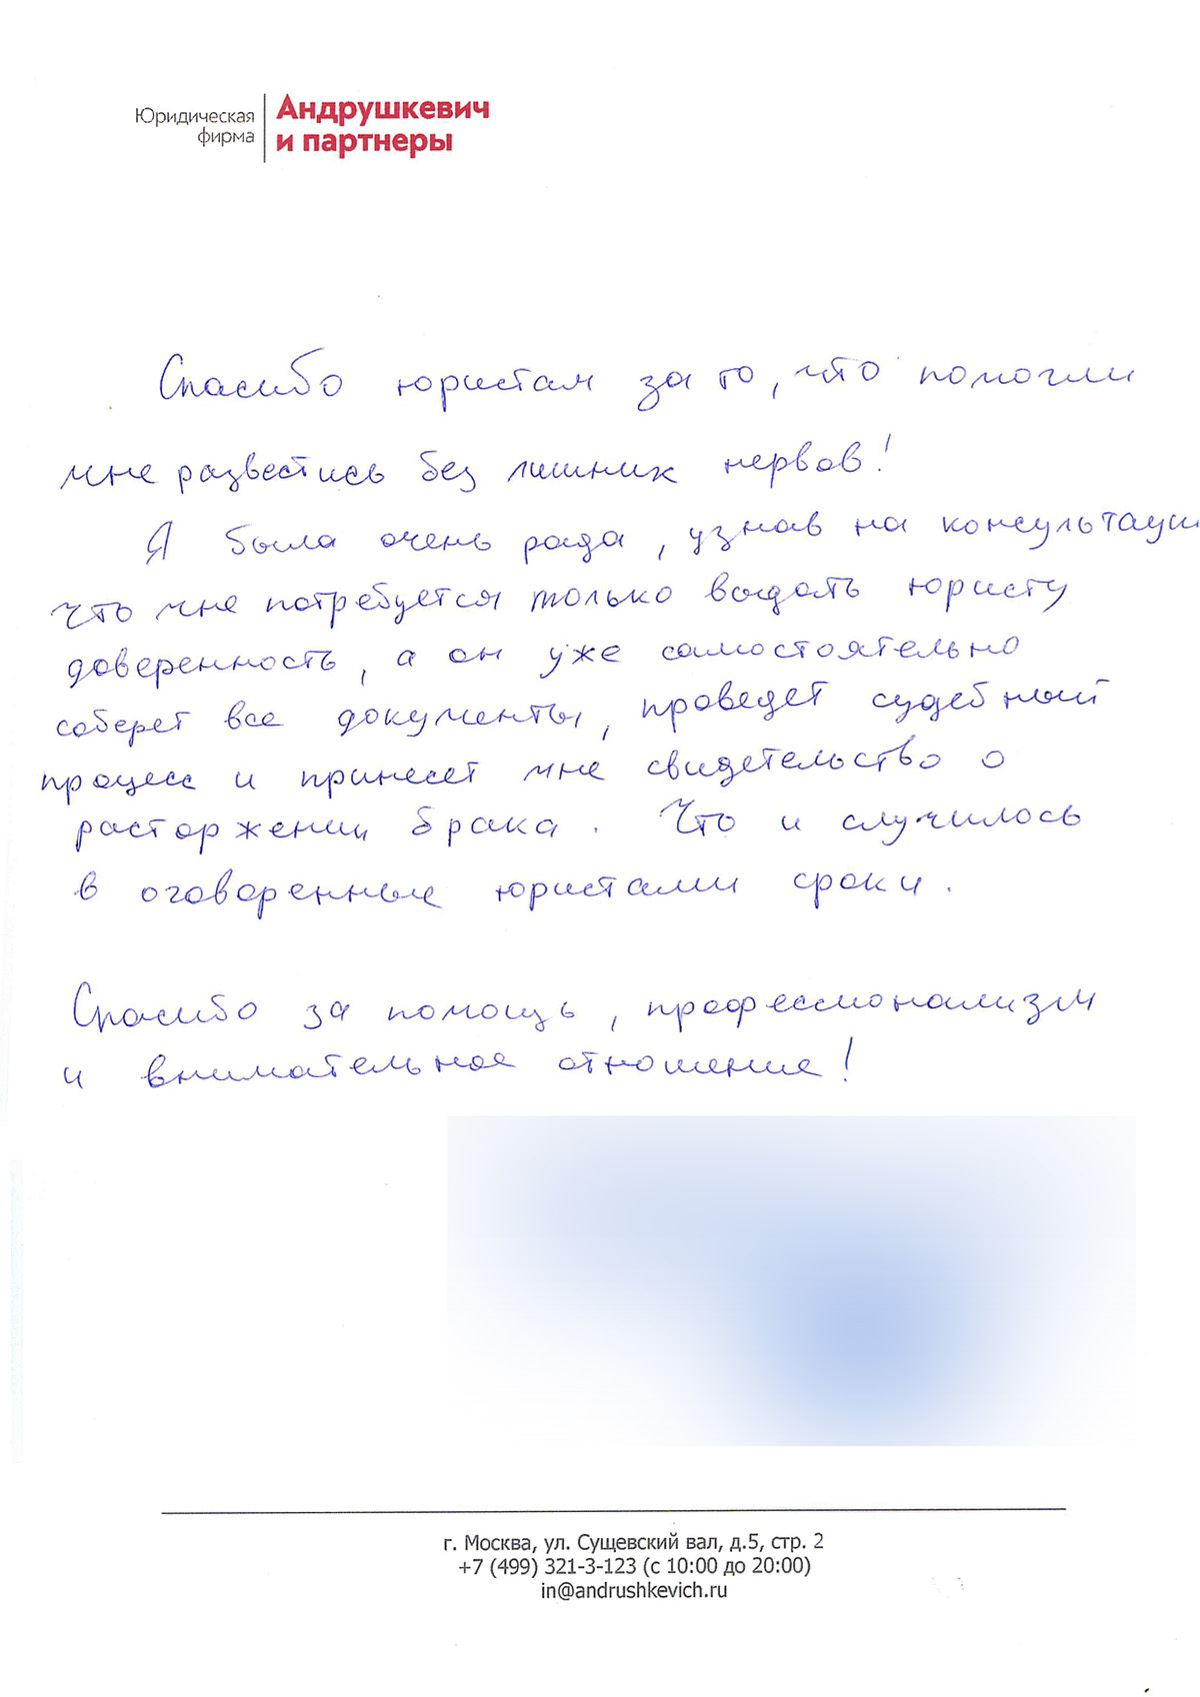 Юридическая фирма
Андрушкевич и партнеры
Спасибо юристам за то, что помогли
мне развестись без лишних нервов!
Я была очень рада, узнав на консультации
что мне потребуется только выдать юристу
доверенность, а он уже самостоятельно
соберет все документы, проведет судебный
процесс и принесет мне свидетельство о
расторжении брака. Что и случилось
в оговоренные юристами сроки.
Спасибо за помощь, профессионализм
и внимательное отношение!
г. Москва, ул. Сущевский вал, д.5, стр. 2
+7 (499) 321-3-123 (с 10:00 до 20:00)
in@andrushkevich.ru